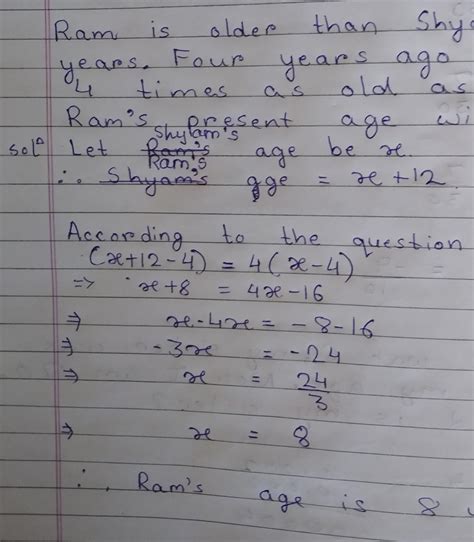 Ram is older than Shy
years. Four years ago
4 times as old as
Ram's present age wi
Shyam's
solⁿ Let Ram's age be x.
Ram's
∴ Shyam's age = x+12
According to the question
(x+12-4) = 4(x-4)
=> x+8 = 4x-16
⇒ x-4x = -8-16
⇒ -3x = -24
⇒ x = 24/3
⇒ x = 8
∴ Ram's age is 8